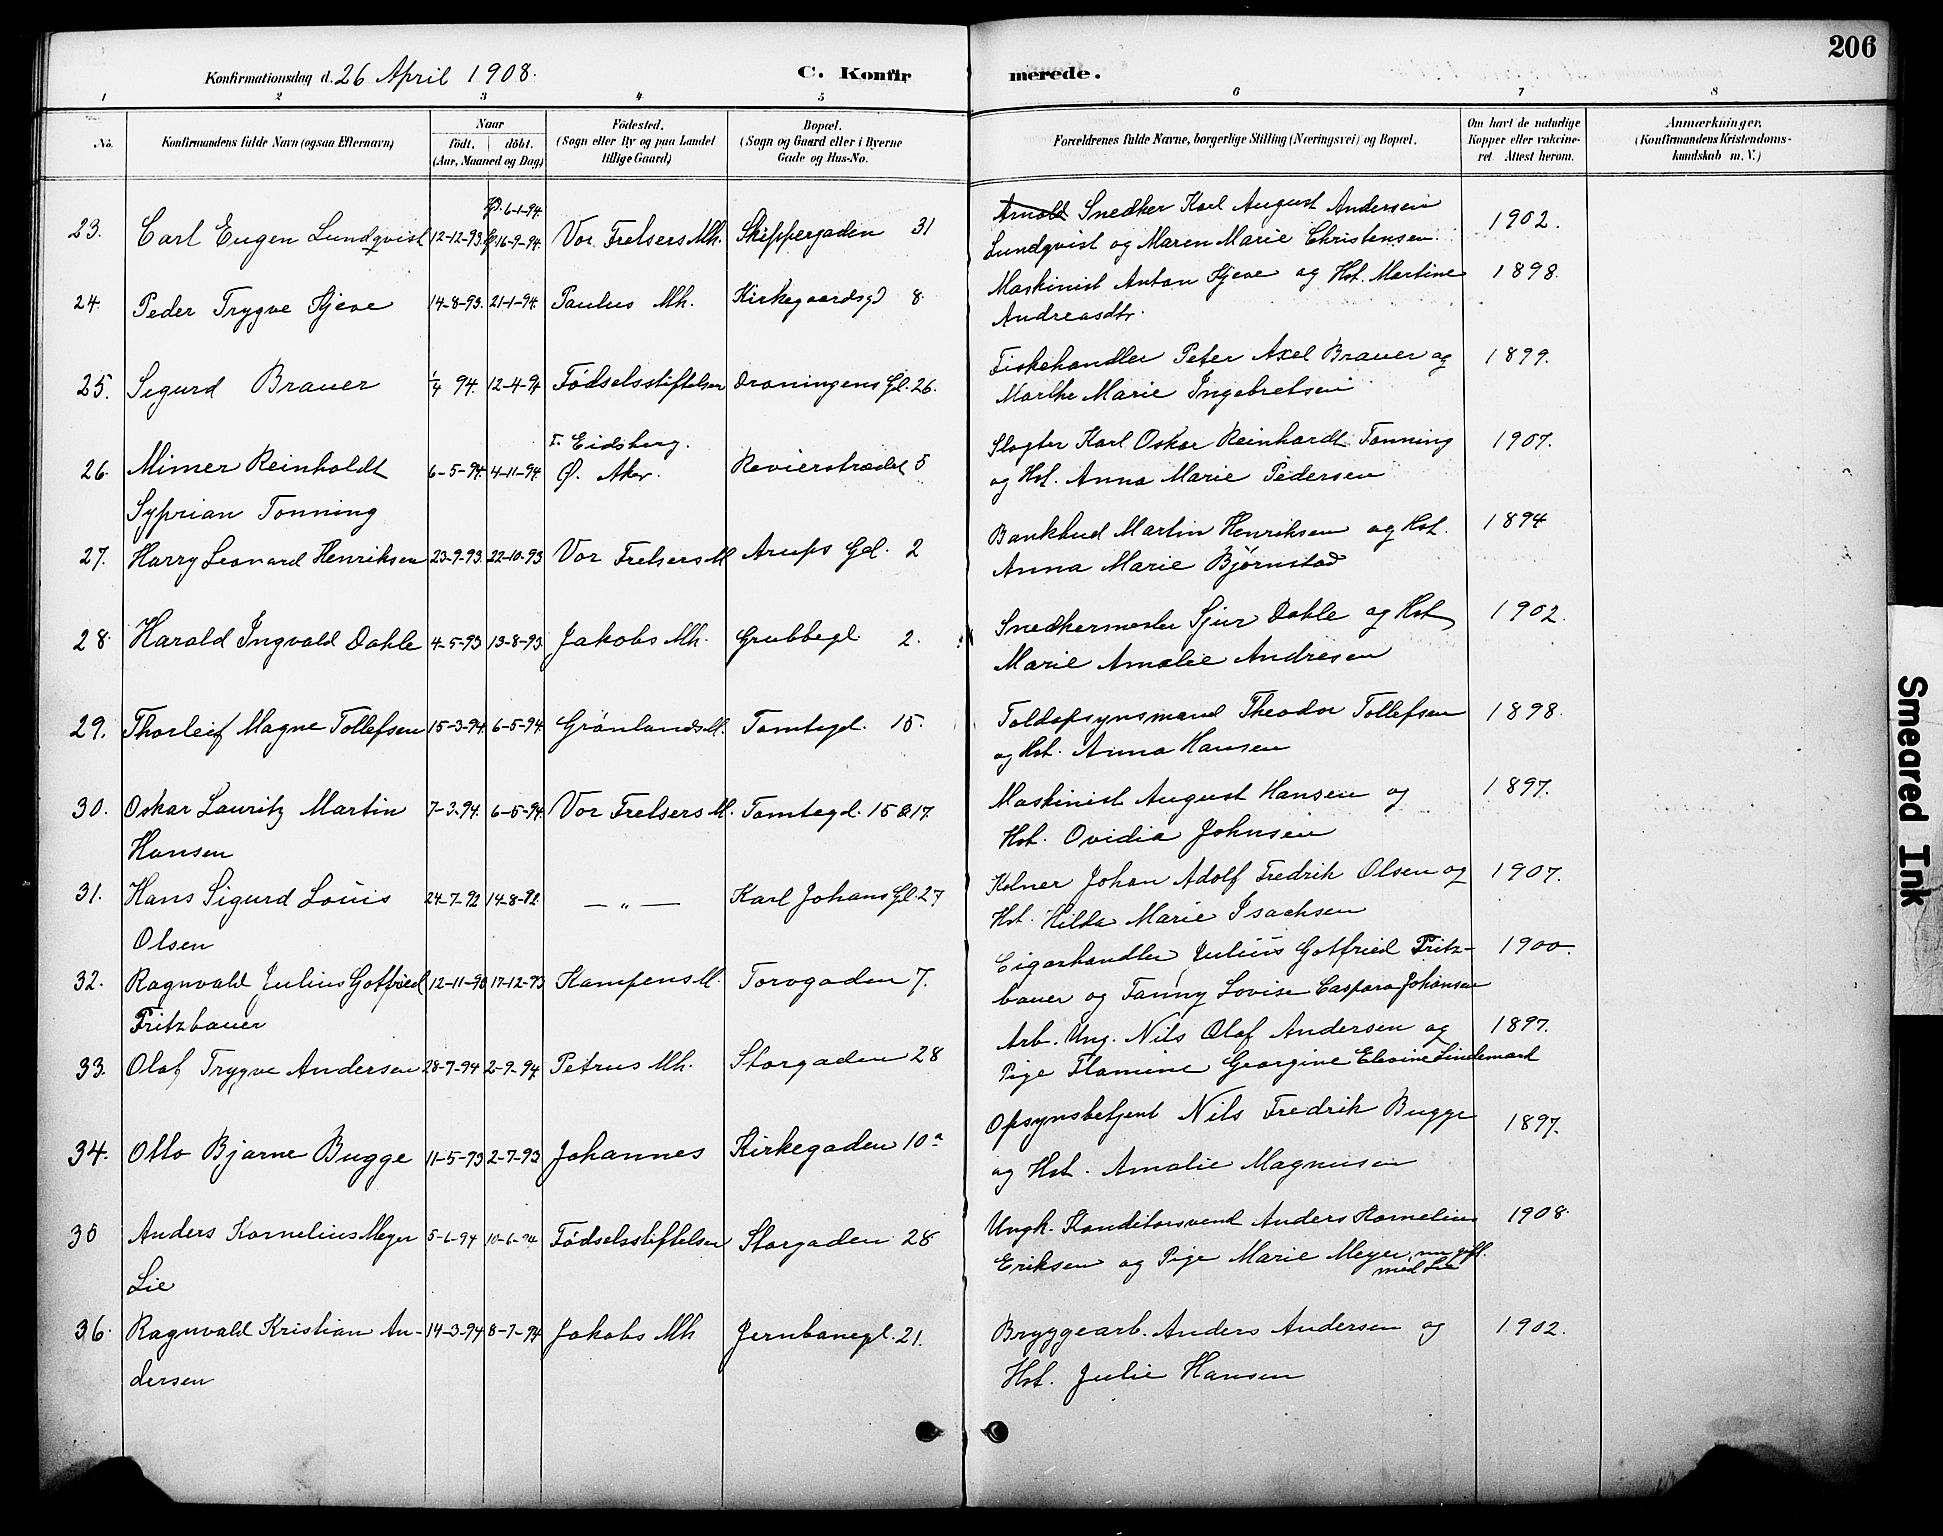 206
Konfirmationsdag d. 26 April 1908.
C. Konfirmerede.
1 2 3 4 5 6 7 8
No. Konfirmandens fulde Navn (ogsaa Efternavn) Naar födt. döbt. (Aar, Maaned og Dag) Födested. (Sogn eller By og paa Landet tillige Gaard) Bopæl. (Sogn og Gaard eller i Byerne Gade og Hus-No. Forældrenes fulde Navne, borgerlige Stilling (Næringsvei) og Bopæl. Om havt de naturlige Kopper eller vakcineret. Attest herom. Anmærkninger. (Konfirmandens Kristendomskundskab m. V.)
23. Carl Eugen Lundqvist 12-12-93. 6-1-94. 16-9-94. Vor Frelsers Mh. Skippergaden 31 Arnold Snedker Karl August Andersen 1902.
Lundqvist og Maren Marie Christensen.
24. Peder Trygve Hjeve 14-8-93. 21-1-94. Paulus Mh. Kirkegaardsgd 8 Maskinist Anton Hjeve og Hst. Martine 1898.
Andreasdtr.
25. Sigurd Brauer 1/4 94. 12-4-94 Födselsstiftelsen Droningens Gd. 26. Fiskehandler Peter Axel Brauer og 1899.
Marthe Marie Ingebretsen
26. Mimer Reinholdt 6-5-94. 4-11-94 T. Eidsberg. Ø. Aker. Revierstrædet 5 Slagter Karl Oskar Reinhardt Tonning 1907.
Syprian Tonning og Hst. Anna Marie Pedersen
27. Harry Leonard Henriksen 23-9-93. 22-10-93 Vor Frelsers M Arups Gd. 2 Bankbud Martin Henriksen og Hst. 1894
Anna Marie Bjørnstad
28. Harald Ingvald Dahle 4-5-93 13-8-93. Jakobs Mh. Grubbegd. 2. Snedkermester Sjur Dahle og Hst 1902.
Marie Amalie Andresen
29. Thorleif Magne Tollefsen 15-3-94. 6-5-94. Grönlands M. Tomtegd. 15. Toldopsynsmand Theodor Tollefsen 1898.
og Hst. Anna Hansen
30. Oskar Lauritz Martin 7-3-94. 6-5-94. Vor Frelsers M. Tomtegd. 15 & 17. Maskinist August Hansen og 1897.
Hansen Hst. Ovidia Johnsen
31. Hans Sigurd Louis 24-7-92 14-8-92. — „ — Karl Johans Gd. 27 Kelner Johan Adolf Fredrik Olsen og 1907.
Olsen Hst. Hilda Marie Isachsen
32. Ragnvald Julius Gotfried 12-11-93 17-12-93 Kampens M. Torvgaden 7. Cigarhandler Julius Gotfried Fritz- 1900.
Fritzbauer bauer og Fanny Lovise Caspara Johansen
33. Olaf Trygve Andersen 28-7-94 2-9-94. Petrus Mh. Storgaden 28 Arb. Ung. Nils Olaf Andersen og 1897.
Pige Flamine Georgine Elevine Lindemark
34. Otto Bjarne Bugge 11-5-93 2-7-93 Johannes Kirkegaden 10 a Opsynsbetjent Nils Fredrik Bugge 1897.
og Hst. Amalie Magnusen
35 Anders Kornelius Meyer 5-6-94 10-6-94 Födselsstiftelsen Storgaden 28 Ungk. Konditorsvend Anders Kornelius 1908.
Lie Eriksen og Pige Marie Meyer, nu gift. med Lie
36. Ragnvald Kristian An- 14-3-94 8-7-94 Jakobs Mh Jernbanegd. 21. Bryggearb. Anders Andersen og 1902.
dersen Hst. Julie Hansen
Smeared Ink